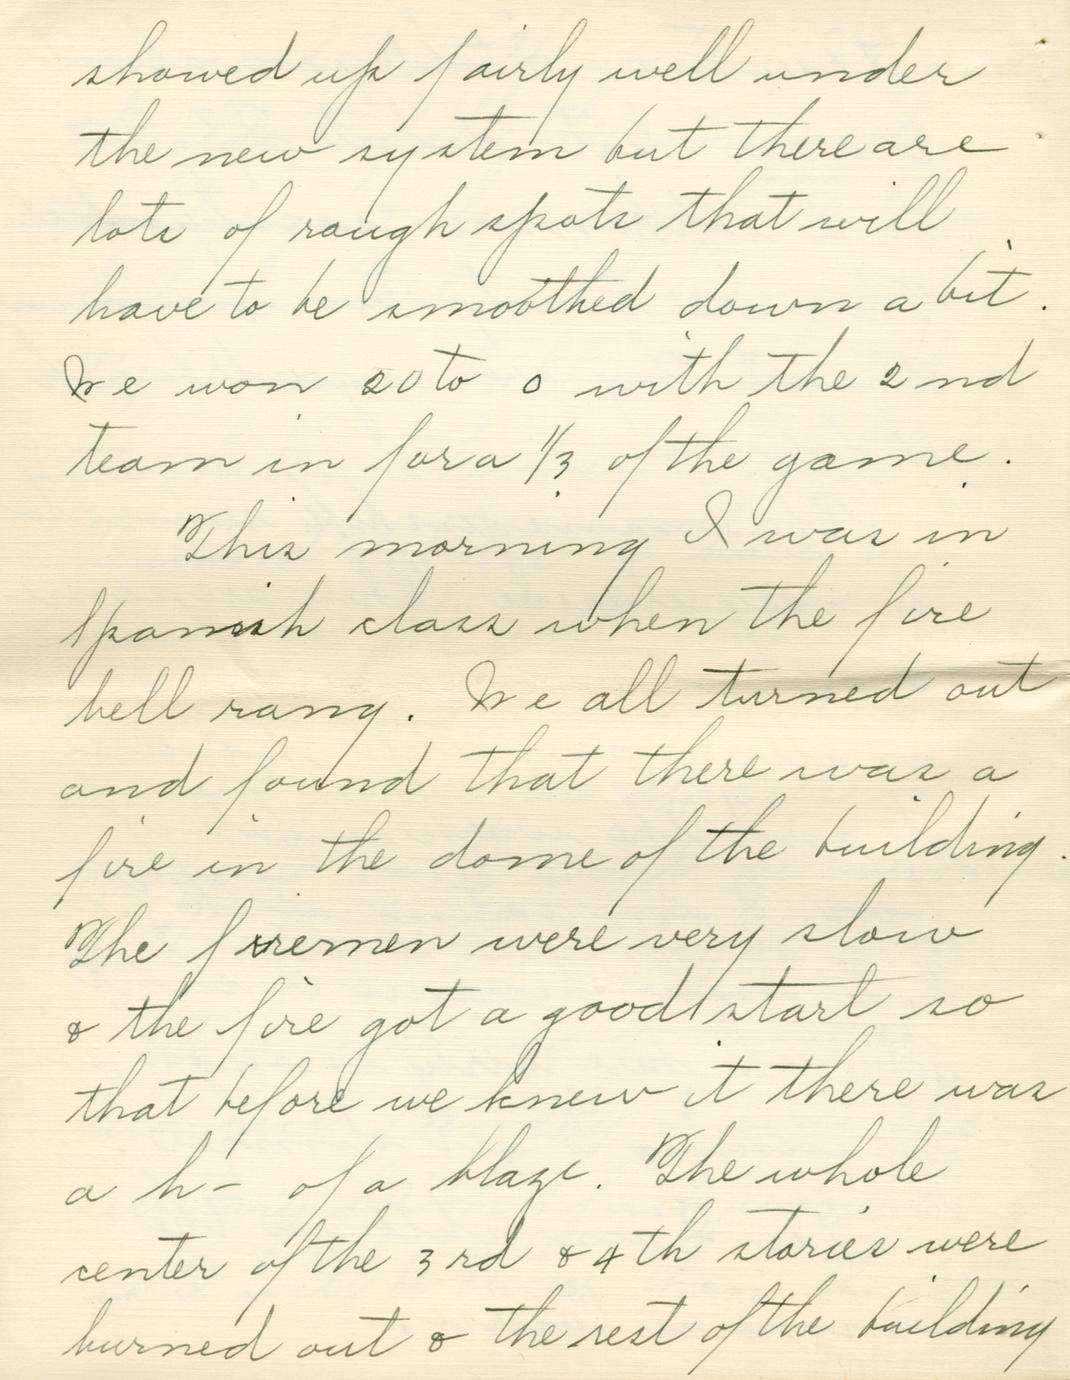 showed up fairly well under
the new system but there are
lots of rough spots that will
have to be smoothed down a bit.
We won 20 to 0 with the 2nd
team in for a 1/3 of the game.
This morning I was in
Spanish class when the fire
bell rang. We all turned out
and found that there was a
fire in the dome of the building.
The firemen were very slow
& the fire got a good start so
that before we knew it there was
a h- of a blaze. The whole
center of the 3rd & 4th stories were
burned out & the rest of the building